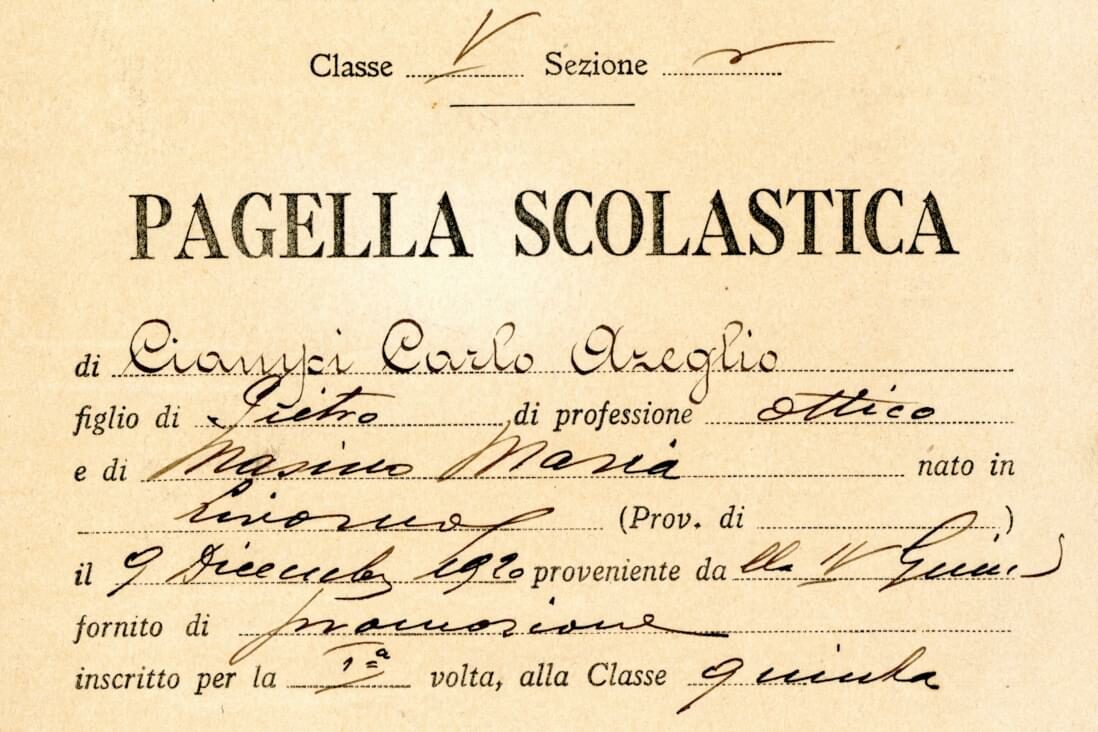 Classe V Sezione
PAGELLA SCOLASTICA
di Ciampi Carlo Azeglio
figlio di Pietro di professione ottico
e di Masino Maria nato in
Livorno (Prov. di )
il 9 Dicembre 1920 proveniente da lla IV Ginn.
fornito di promozione
inscritto per la 1ª volta, alla Classe quinta